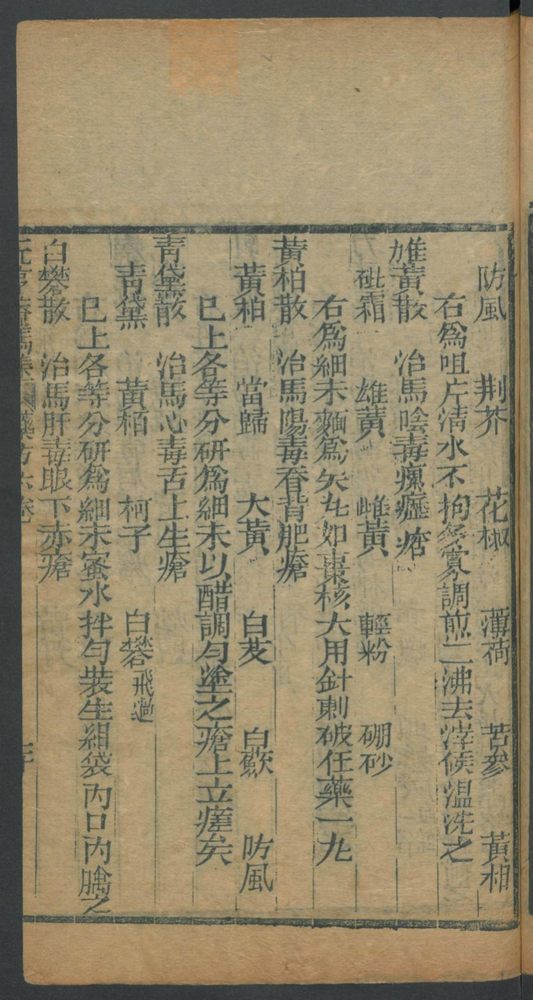 防風 荆芥 花椒 薄荷 苦參 黄栢
右爲㕮片清水不拘多寡調煎二沸去滓候温洗之
雄黄散 治馬陰毒瘰癧瘡
砒霜 雄黄 雌黄 輕粉 硼砂
右爲細末麵爲矢丸如棗核大用針刺破任藥一丸
黄柏散 治馬陽毒脊背肥瘡
黄柏 當歸 大黄 白芨 白蘞 防風
已上各等分研爲細末以醋調勻塗之瘡上立瘥矣
青黛散 治馬心毒舌上生瘡
青黛 黄栢 柯子 白礬飛過
已上各等分研爲細末蜜水拌勻裝生絹袋内口内噙之
白礬散 治馬肝毒眼下赤瘡
元亨療馬集 藥方六卷